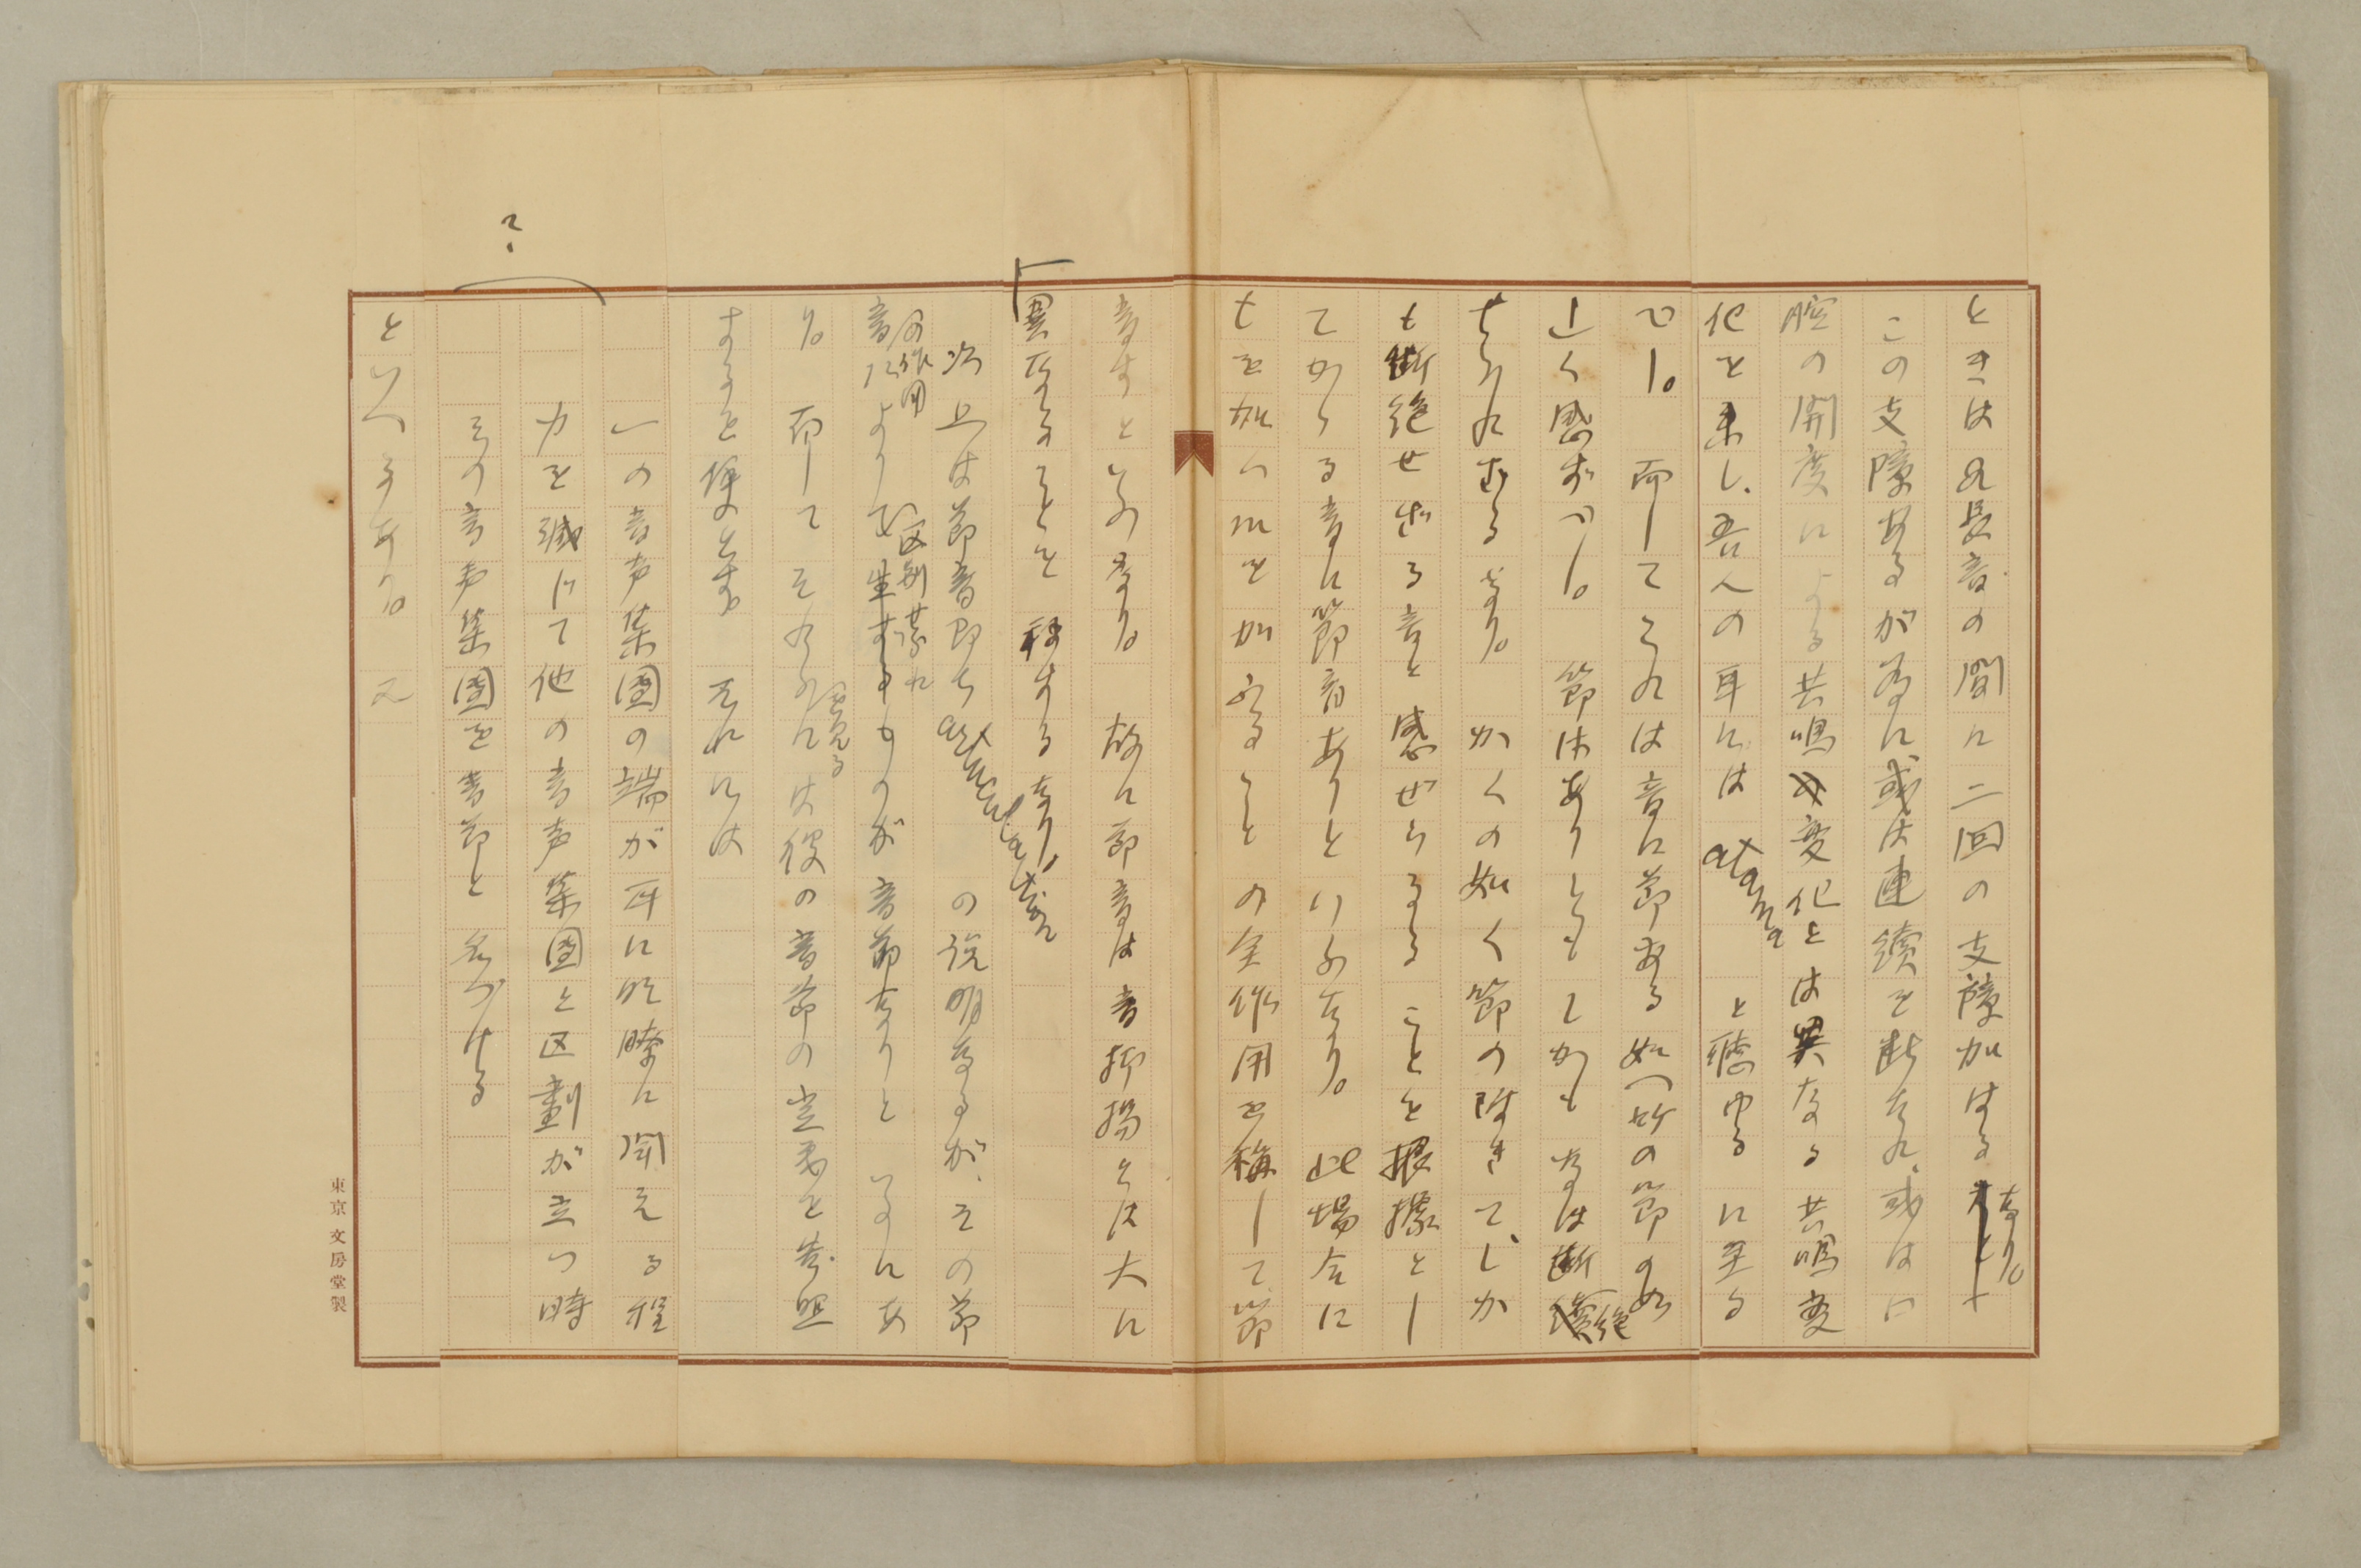 ときはa長音の間に二回の支障加はるなり。
この支障あるが為に、或は連続を断たれ、或は口
腔の開度による共鳴変化とは異なる共鳴変
化を来し、吾人の耳には atana と聴ゆるに至る
べし。而してこれは音に節ある如く竹の節の如
しく感ずべし。節はありともしかも音は断絶
せられざるなり。かくの如く節の附きて、しか
も断絶せざる音と感ぜらるることを根拠とし
てかゝる音に節音ありといふなり。此場合に
もを如くmを加ふることの全作用を称して、節
音すといふなり。故に節音は音抑揚とは大に
異なることを称するなり。
次上は節音即ち articulation の説明なるが、その節
音の作用によりて区別せられ生ずるものが音節なりといふにあ
り。而してそれらには後の音節の定義を参照
するを便とす。それには
一の音声集団の端が耳に明瞭に聞える程
力を減じて他の音声集団と区劃が立つ時
その音声集団を音節と名づける
といへるあり。又
?
東京 文房堂製